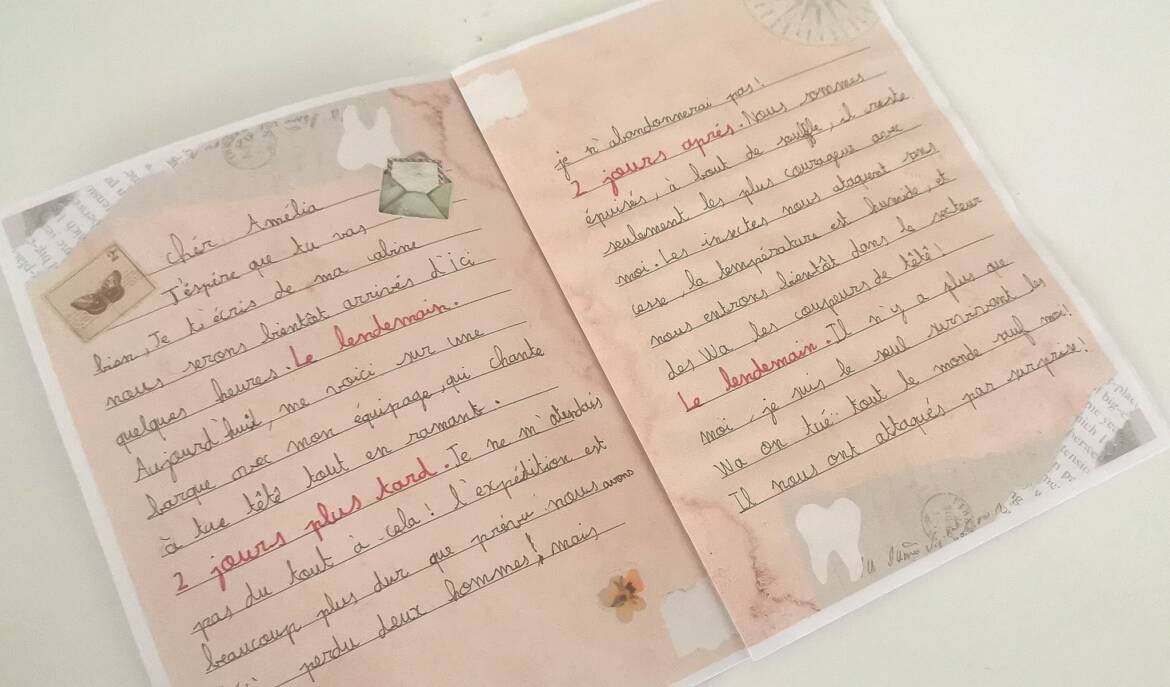 chér Amélia
J'éspére que tu vas
bien, Je t'écris de ma cabine
nous serons bientôt arrivés d'ici
quelques heures. Le lendemain.
Aujourd'huit, me voici sur une
barque avec mon équipage, qui chante
à tue têtê tout en ramant.
2 jours plus tard. Je ne m'atendais
pas du tout à cela! l'expédition est
beaucoup plus dur que prévu nous avons
perdu deux hommes! mais
je n'abandonnerai pas!
2 jours aprés. Nous sommes
épuisés, à bout de souffle, il reste
seulement les plus courageux avec
moi. Les insectes nous ataquent sans
casse, la température est humide, et
nous entrons bientôt dans le secteur
des Wa les coupeurs de têtê!
Le lendemain. Il n'y a plus que
moi, je suis le seul survivant les
Wa on tué tout le monde sauf moi!
Il nous ont attaqués par surprise!